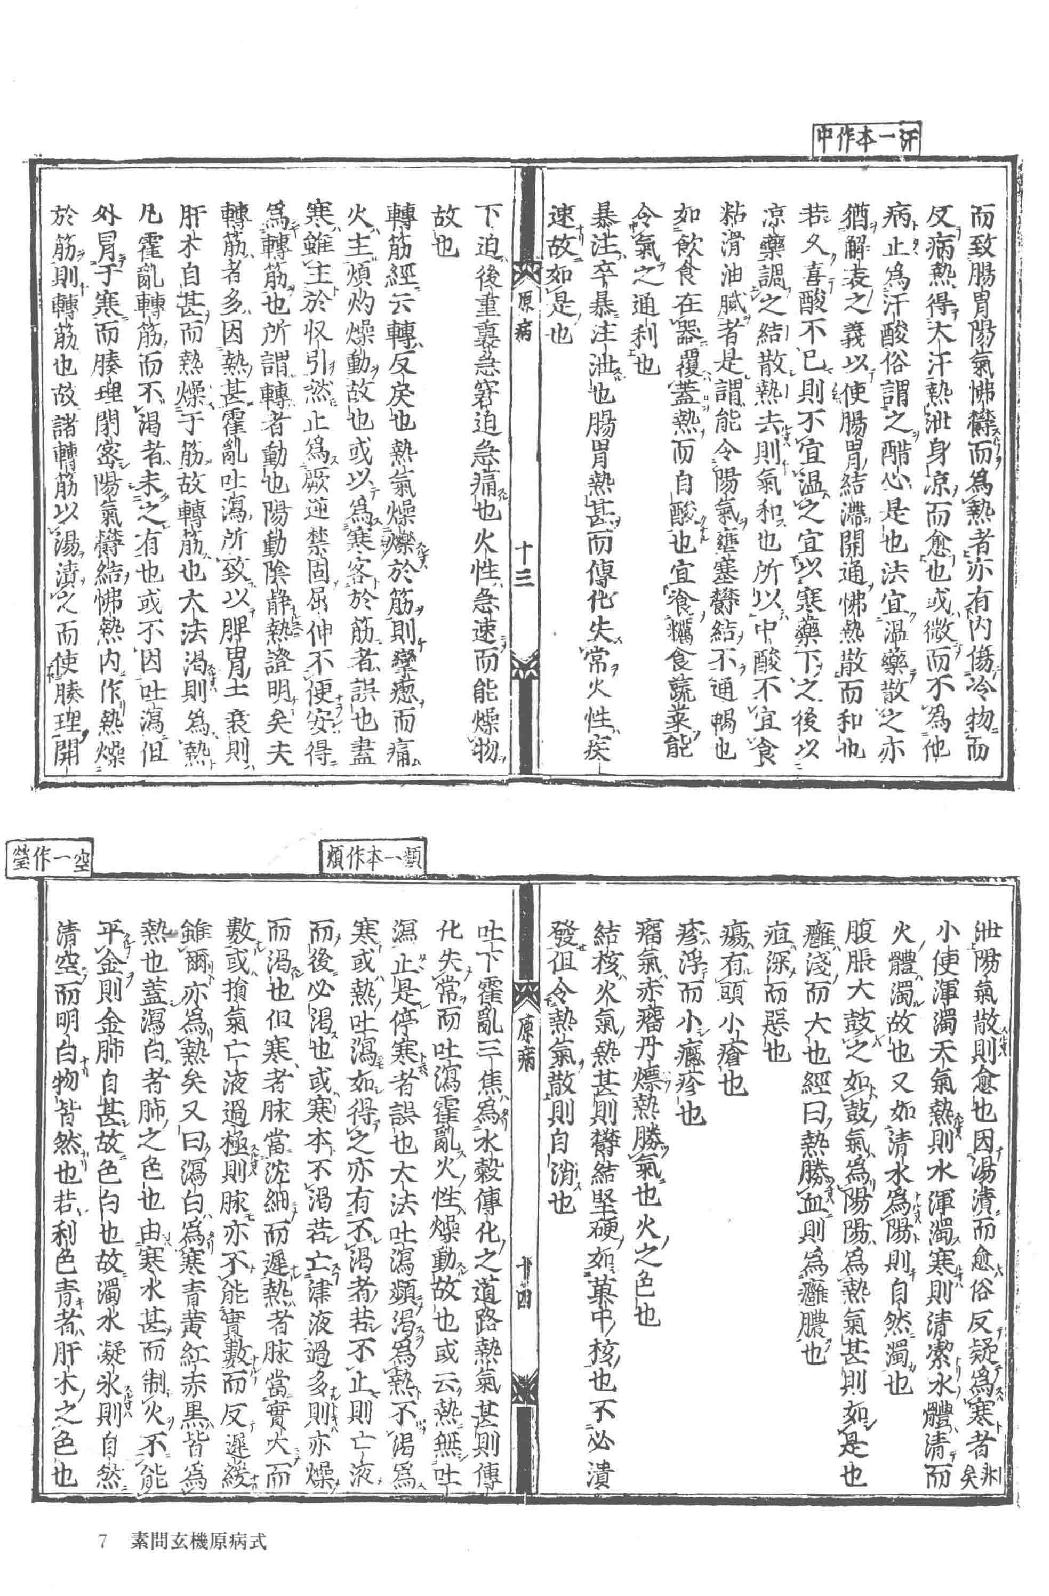 汗一本作中
而致腸胃陽氣怫欝而爲熱者亦有内傷冷物而
反病熱得大汗熱泄身凉而愈也或微而不爲他
病止爲汗酸俗謂之醋心是也法宜温藥散之亦
猶解表之義以使腸胃結滯開通怫熱散而和也
若久喜酸不已則不宜温之宜以寒藥下之後以
凉藥調之結散熱去則氣和也所以中酸不宜食
粘滑油膩者是謂能令陽氣壅塞欝結不通暢也
如飲食在器覆蓋熱而自酸也宜飡糲食蔬菜能
令氣之通利也
暴注卒暴注泄也腸胃熱甚而傳化失常火性疾
速故如是也
原病
十三
下迫後重裏急窘迫急痛也火性急速而能燥物
故也
轉筋經云轉反戾也熱氣燥爍於筋則攣瘛而痛
火主燔灼燥動故也或以爲寒客於筋者誤也盖
寒雖主於収引然止爲厥逆禁固屈伸不便安得
爲轉筋也所謂轉者動也陽動陰静熱證明矣夫
轉筋者多因熱甚霍亂吐瀉所致以脾胃土衰則
肝木自甚而熱燥于筋故轉筋也大法渴則爲熱
凡霍亂轉筋而不渴者未之有也或不因吐瀉但
外冐于寒而腠理閉密陽氣欝結怫熱内作熱燥
於筋則轉筋也故諸轉筋以湯漬之而使腠理開
類一本作煩
空一作瑩
泄陽氣散則愈也因湯漬而愈俗反疑爲寒者非矣
小使渾濁天氣熱則水渾濁寒則清潔水體清而
火體濁故也又如清水爲陽則自然濁也
腹脹大鼓之如鼓氣爲陽陽爲熱氣甚則如是也
癰淺而大也經曰熱勝血則爲癰膿也
疽深而惡也
瘍有頭小瘡也
疹浮而小癮疹也
瘤氣赤瘤丹熛熱勝氣也火之色也
結核火氣熱甚則欝結堅硬如菓中核也不必潰
發但令熱氣散則自消也
原病
十四
吐下霍亂三焦爲水穀傳化之道路熱氣甚則傳
化失常而吐瀉霍亂火性燥動故也或云熱無吐
瀉止是停寒者誤也大法吐瀉類渴爲熱不渴爲
寒或熱吐瀉如得之亦有不渴者若不止則亡液
而後必渴也或寒本不渴若亡津液過多則亦燥
而渴也但寒者脉當沈細而遲熱者脉當實大而
數或損氣亡液過極則脉亦不能實數而反遲緩
雖爾亦爲熱矣又曰瀉白爲寒青黄紅赤黒皆爲
熱也蓋瀉白者肺之色也由寒水甚而制火不能
平金則金肺自甚故色白也故濁水凝氷則自然
清空而明白物皆然也若利色青者肝木之色也
7　素問玄機原病式